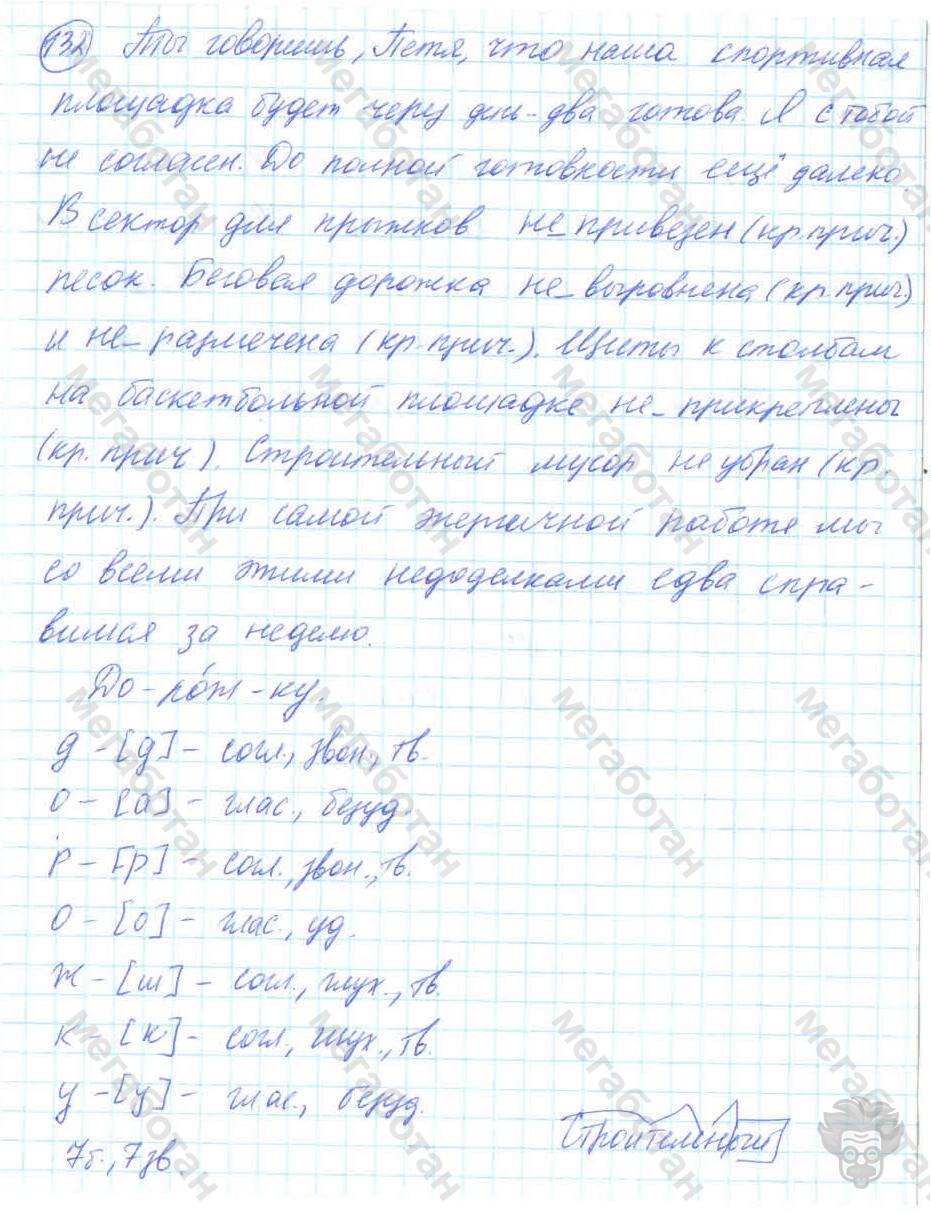 132 Ты говоришь, Петя, что наша спортивная
площадка будет через день-два готова. Я с тобой
не согласен. До полной готовности ещё далеко.
В сектор для прыжков не привезен (кр. прич.)
песок. Беговая дорожка не выровнена (кр. прич.)
и не размечена (кр. прич.). Щиты к столбам
на баскетбольной площадке не прикреплены
(кр. прич.). Строительный мусор не убран (кр.
прич.). При самой энергичной работе мы
со всеми этими недоделками едва спра-
вимся за неделю.
До-ро́ж-ку.
д - [д] - согл., звон., тв.
о - [а] - глас., безуд.
р - [р] - согл., звон., тв.
о - [о] - глас., уд.
ж - [ш] - согл., глух., тв.
к - [к] - согл., глух., тв.
у - [у] - глас., безуд.
7б., 7зв.
Строительный
Мегаботан